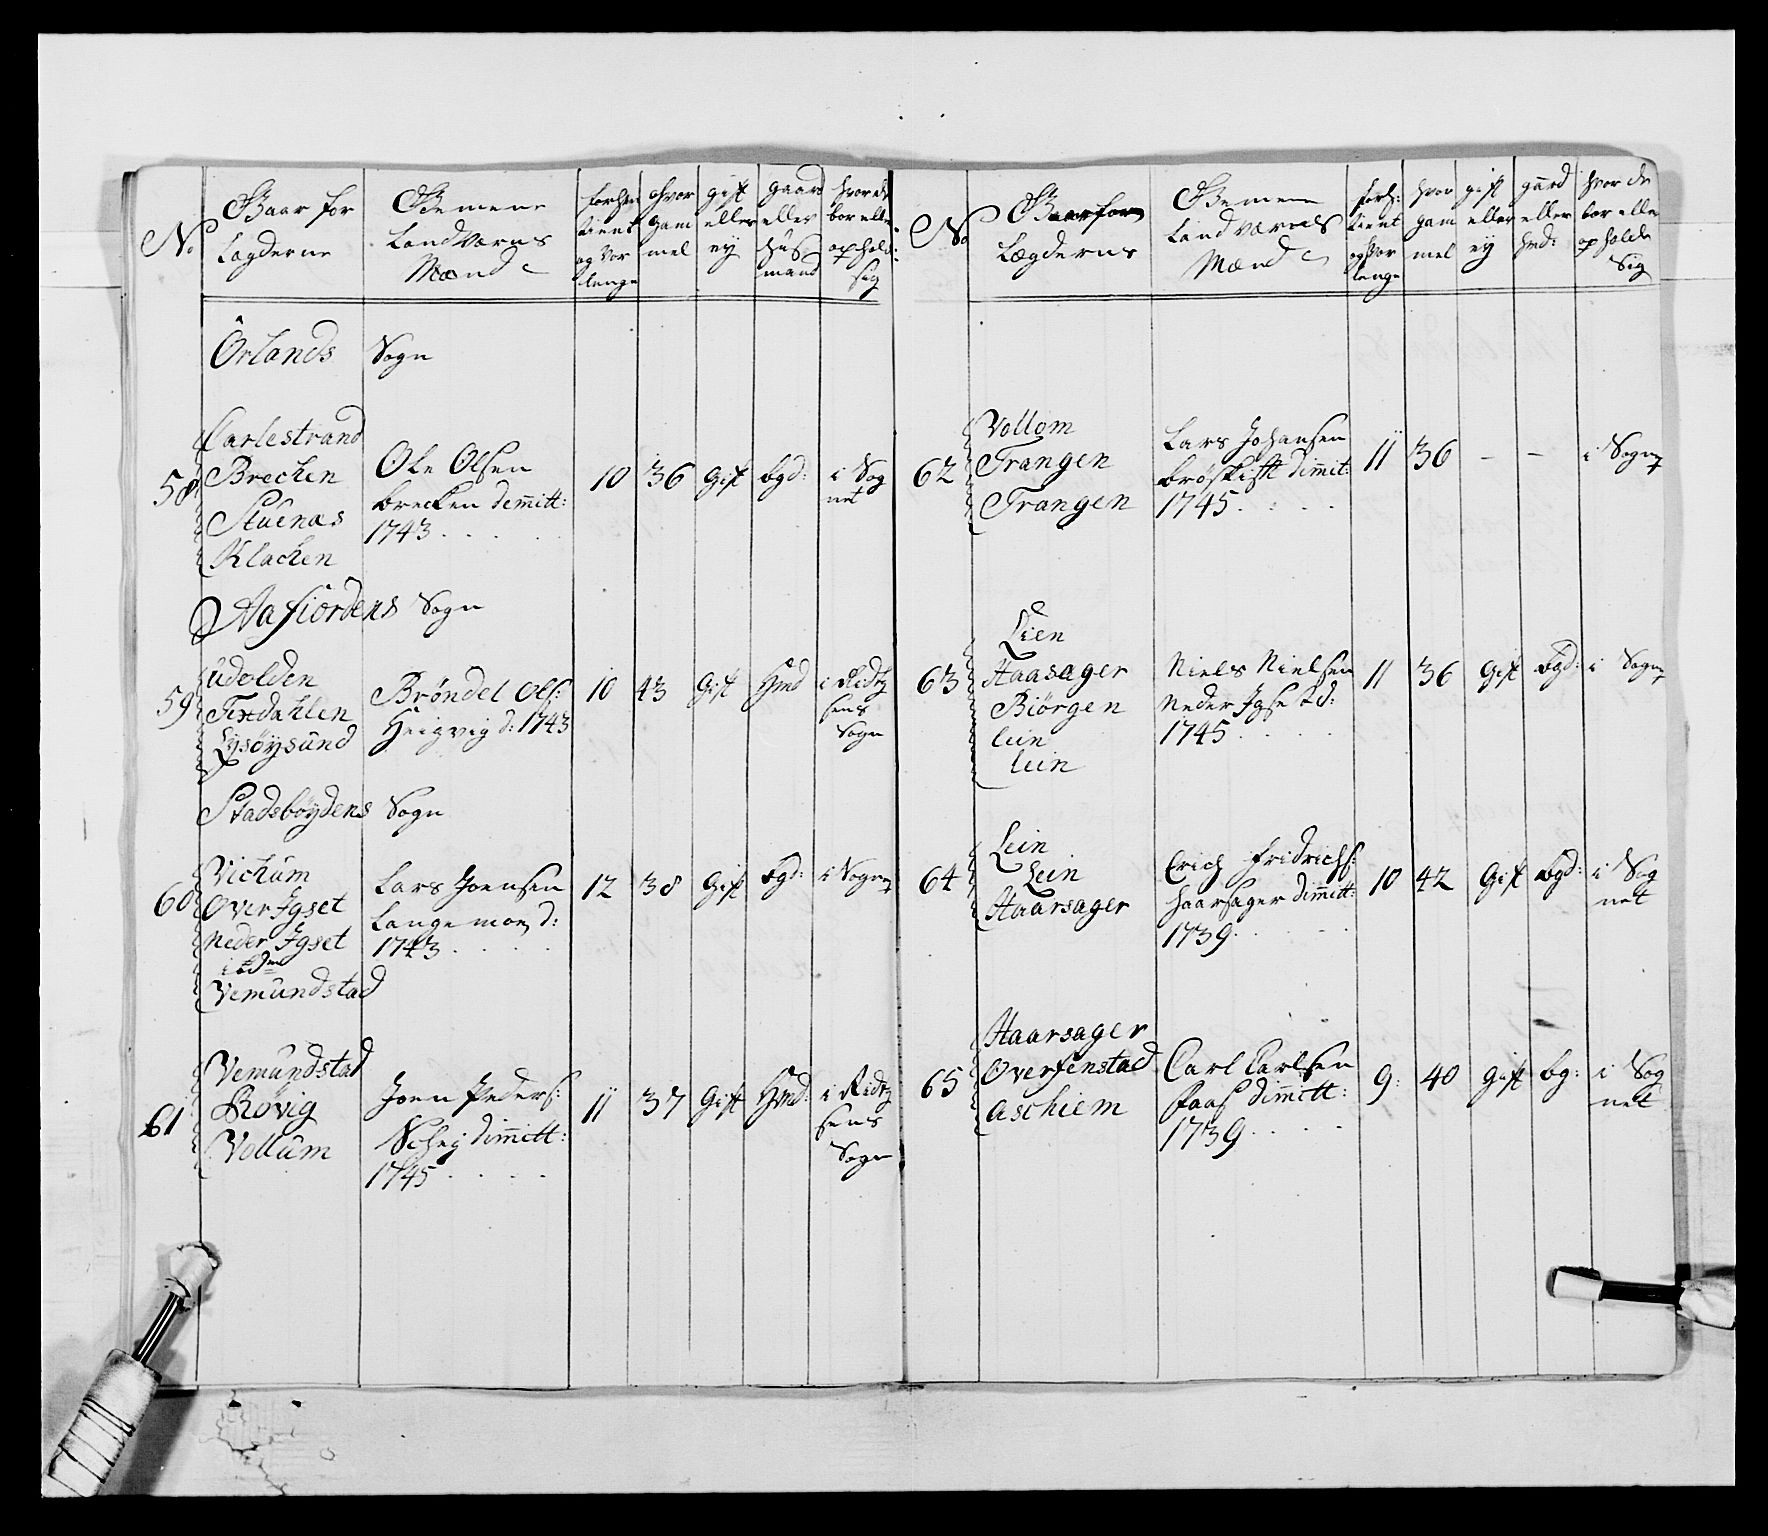 No
Gaar for
Lægderne
Gemene
Land Værns
Mænd
forhen
tient
og Vor
lenge
Hvor
gam
mel
gift
eller
ey
gaard
eller
Hus
mand
hvor de
bor eller
ophold:
sig
Örlands Sogn
58
Carlestrand
Brechen
Stuenæs
Klachen
Ole Olsen
brecken demitt:
1743
10
36
gift
bgd:
i Sog
net
Aafiordens Sogn
59
Udolden
Fixdahlen
Lysöysund
Bröndel Ols:
Heigvig d: 1743
10
43
gift
Hmd
i Ridtz
sens
Sogn
Stadsböydens Sogn
60
Vichum
Over Igset
Neder Igset
ibdm
Vemundstad
Lars Joensen
Langemoen d:
1743
12
38
gift
bgd:
i Sogn
61
Vemundstad
Rövig
Vollum
Joen Peders:
Schej dimitt:
1745
11
37
gift
Hmd:
i Ridtz
sens
Sogn
No
Gaar for
Lægderns
Gemene
Land værns
Mænd
forh:
tient
og Vor
lenge
hvor
gam
mel
gift
eller
ey
gaard
eller
hmd:
hvor de
bor eller
opholde
Sig
62
Vollom
Trangen
Trangen
Lars Johansen
bröskift dimit:
1745
11
36
–
–
i Sogn
63
Lien
Haasager
Biörgen
lein
lein
Niels Nielsen
Neder Igset d:
1745
11
36
gift
bgd:
i Sogn
64
Lein
Lein
Haarsager
Erich Fridrichs:
Haarsager dimitt:
1739
10
42
gift
bgd:
i Sog
net
65
Haarsager
Overfenstad
Aschiem
Carl Carlsen
Faas dimitt:
1739
9:
40
gift
bg:
i Sog
net